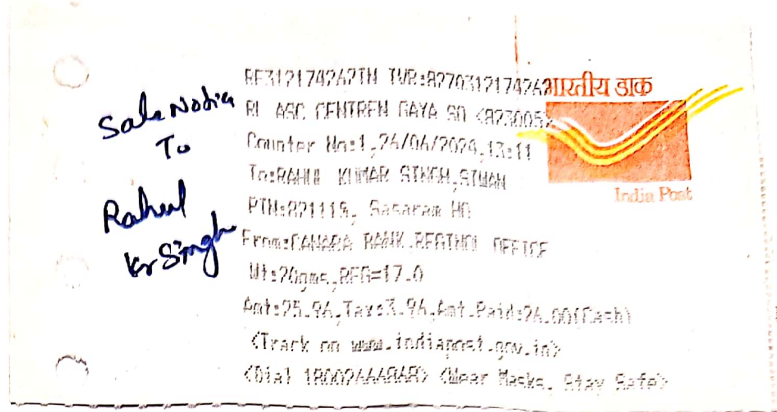 Sale Notice
To
Rahul
Kr Singh
भारतीय डाक
India Post
RF312174262IN IVR:8270312174262
RL ASC CENTREN GAYA SO <823005>
Counter No:1,26/06/2024,13:11
To:RAHUL KUMAR SINGH,SIWAN
PIN:821115, Sasaram HO
From:CANARA BANK,REGIONL OFFICE
Wt:20gms,REG=17.0
Amt:25.96,Tax:3.96,Amt.Paid:26.00(Cash)
<Track on www.indiapost.gov.in>
<Dial 18002666868> <Wear Masks, Stay Safe>